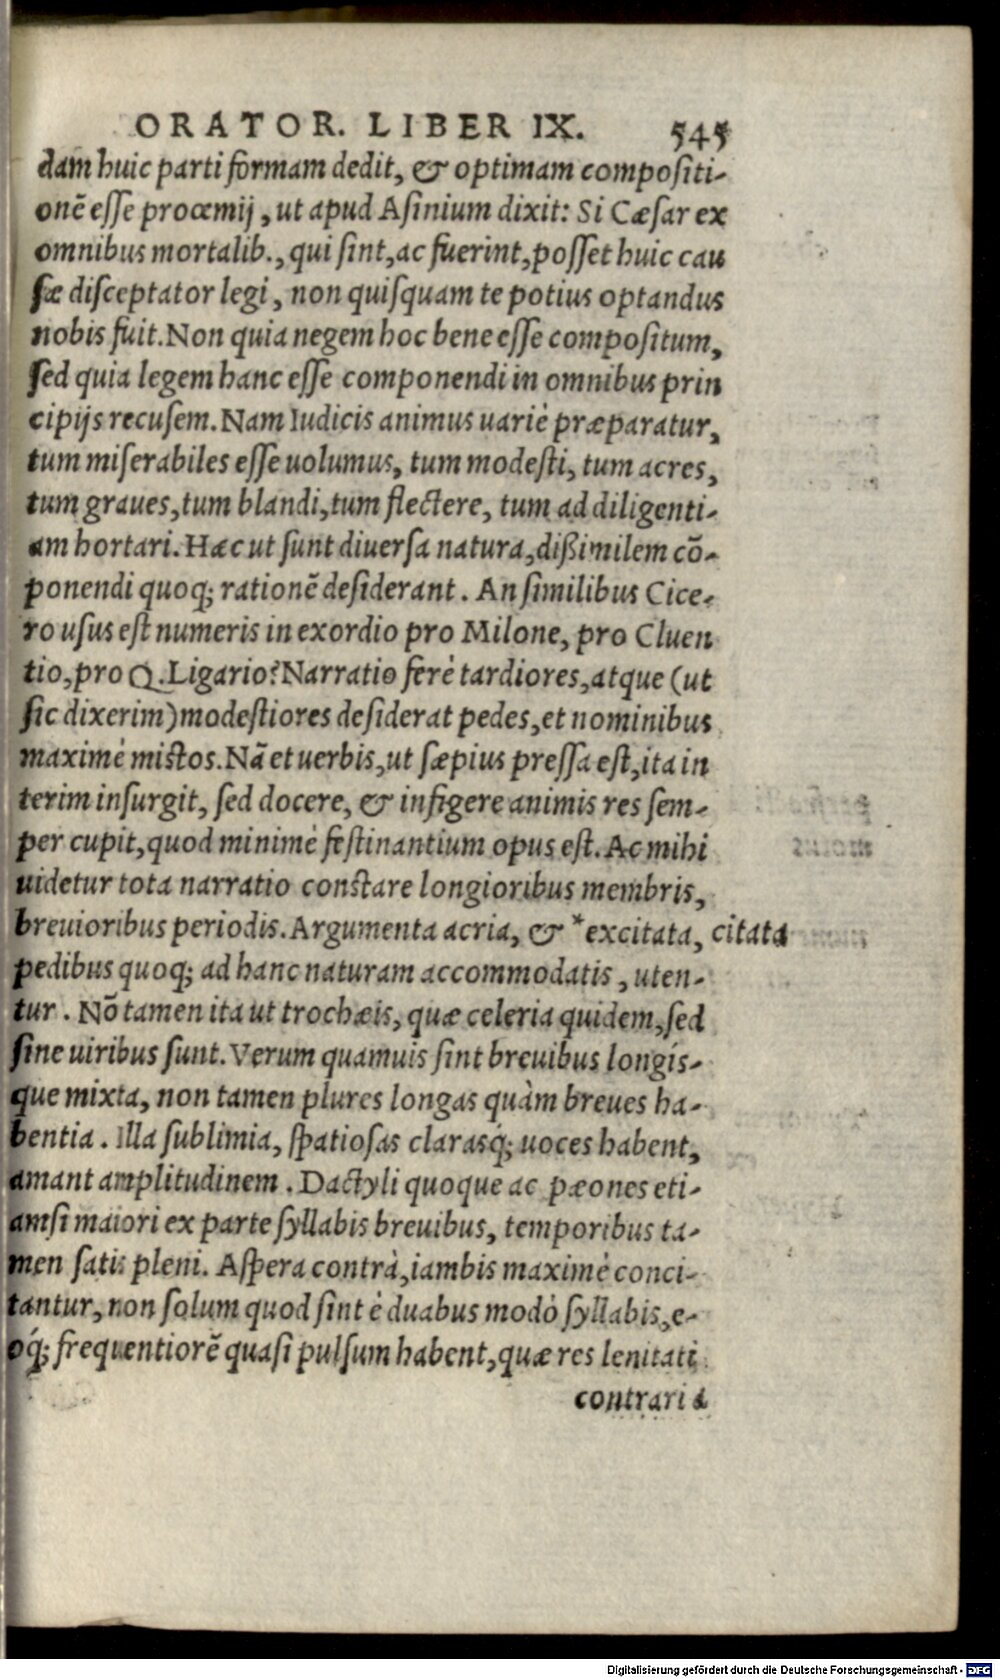 ORATOR. LIBER IX. 545
dam huic parti formam dedit, & optimam compositi-
onē esse proœmij, ut apud Asinium dixit: Si Cæsar ex
omnibus mortalib., qui sint, ac fuerint, posset huic cau
sæ disceptator legi, non quisquam te potius optandus
nobis fuit. Non quia negem hoc bene esse compositum,
sed quia legem hanc esse componendi in omnibus prin
cipijs recusem. Nam Iudicis animus uariè præparatur,
tum miserabiles esse uolumus, tum modesti, tum acres,
tum graues, tum blandi, tum flectere, tum ad diligenti-
am hortari. Hæc ut sunt diuersa natura, dißimilem cō-
ponendi quoq; rationē desiderant. An similibus Cice-
ro usus est numeris in exordio pro Milone, pro Cluen
tio, pro Q. Ligario? Narratio ferè tardiores, atque (ut
sic dixerim) modestiores desiderat pedes, et nominibus
maximè mistos. Nā et uerbis, ut sæpius pressa est, ita in
terim insurgit, sed docere, & infigere animis res sem-
per cupit, quod minimè festinantium opus est. Ac mihi
uidetur tota narratio constare longioribus membris,
breuioribus periodis. Argumenta acria, & *excitata, citata
pedibus quoq; ad hanc naturam accommodatis, uten-
tur. Nō tamen ita ut trochæis, quæ celeria quidem, sed
sine uiribus sunt. Verum quamuis sint breuibus longís-
que mixta, non tamen plures longas quàm breues ha-
bentia. Illa sublimia, spatiosas clarasq́; uoces habent,
amant amplitudinem. Dactyli quoque ac pæones eti-
amsi maiori ex parte syllabis breuibus, temporibus ta-
men satis pleni. Aspera contrà, iambis maximè conci-
tantur, non solum quod sint è duabus modò syllabis, e-
oq́; frequentiorē quasi pulsum habent, quæ res lenitati
contraria
Digitalisierung gefördert durch die Deutsche Forschungsgemeinschaft - DFG